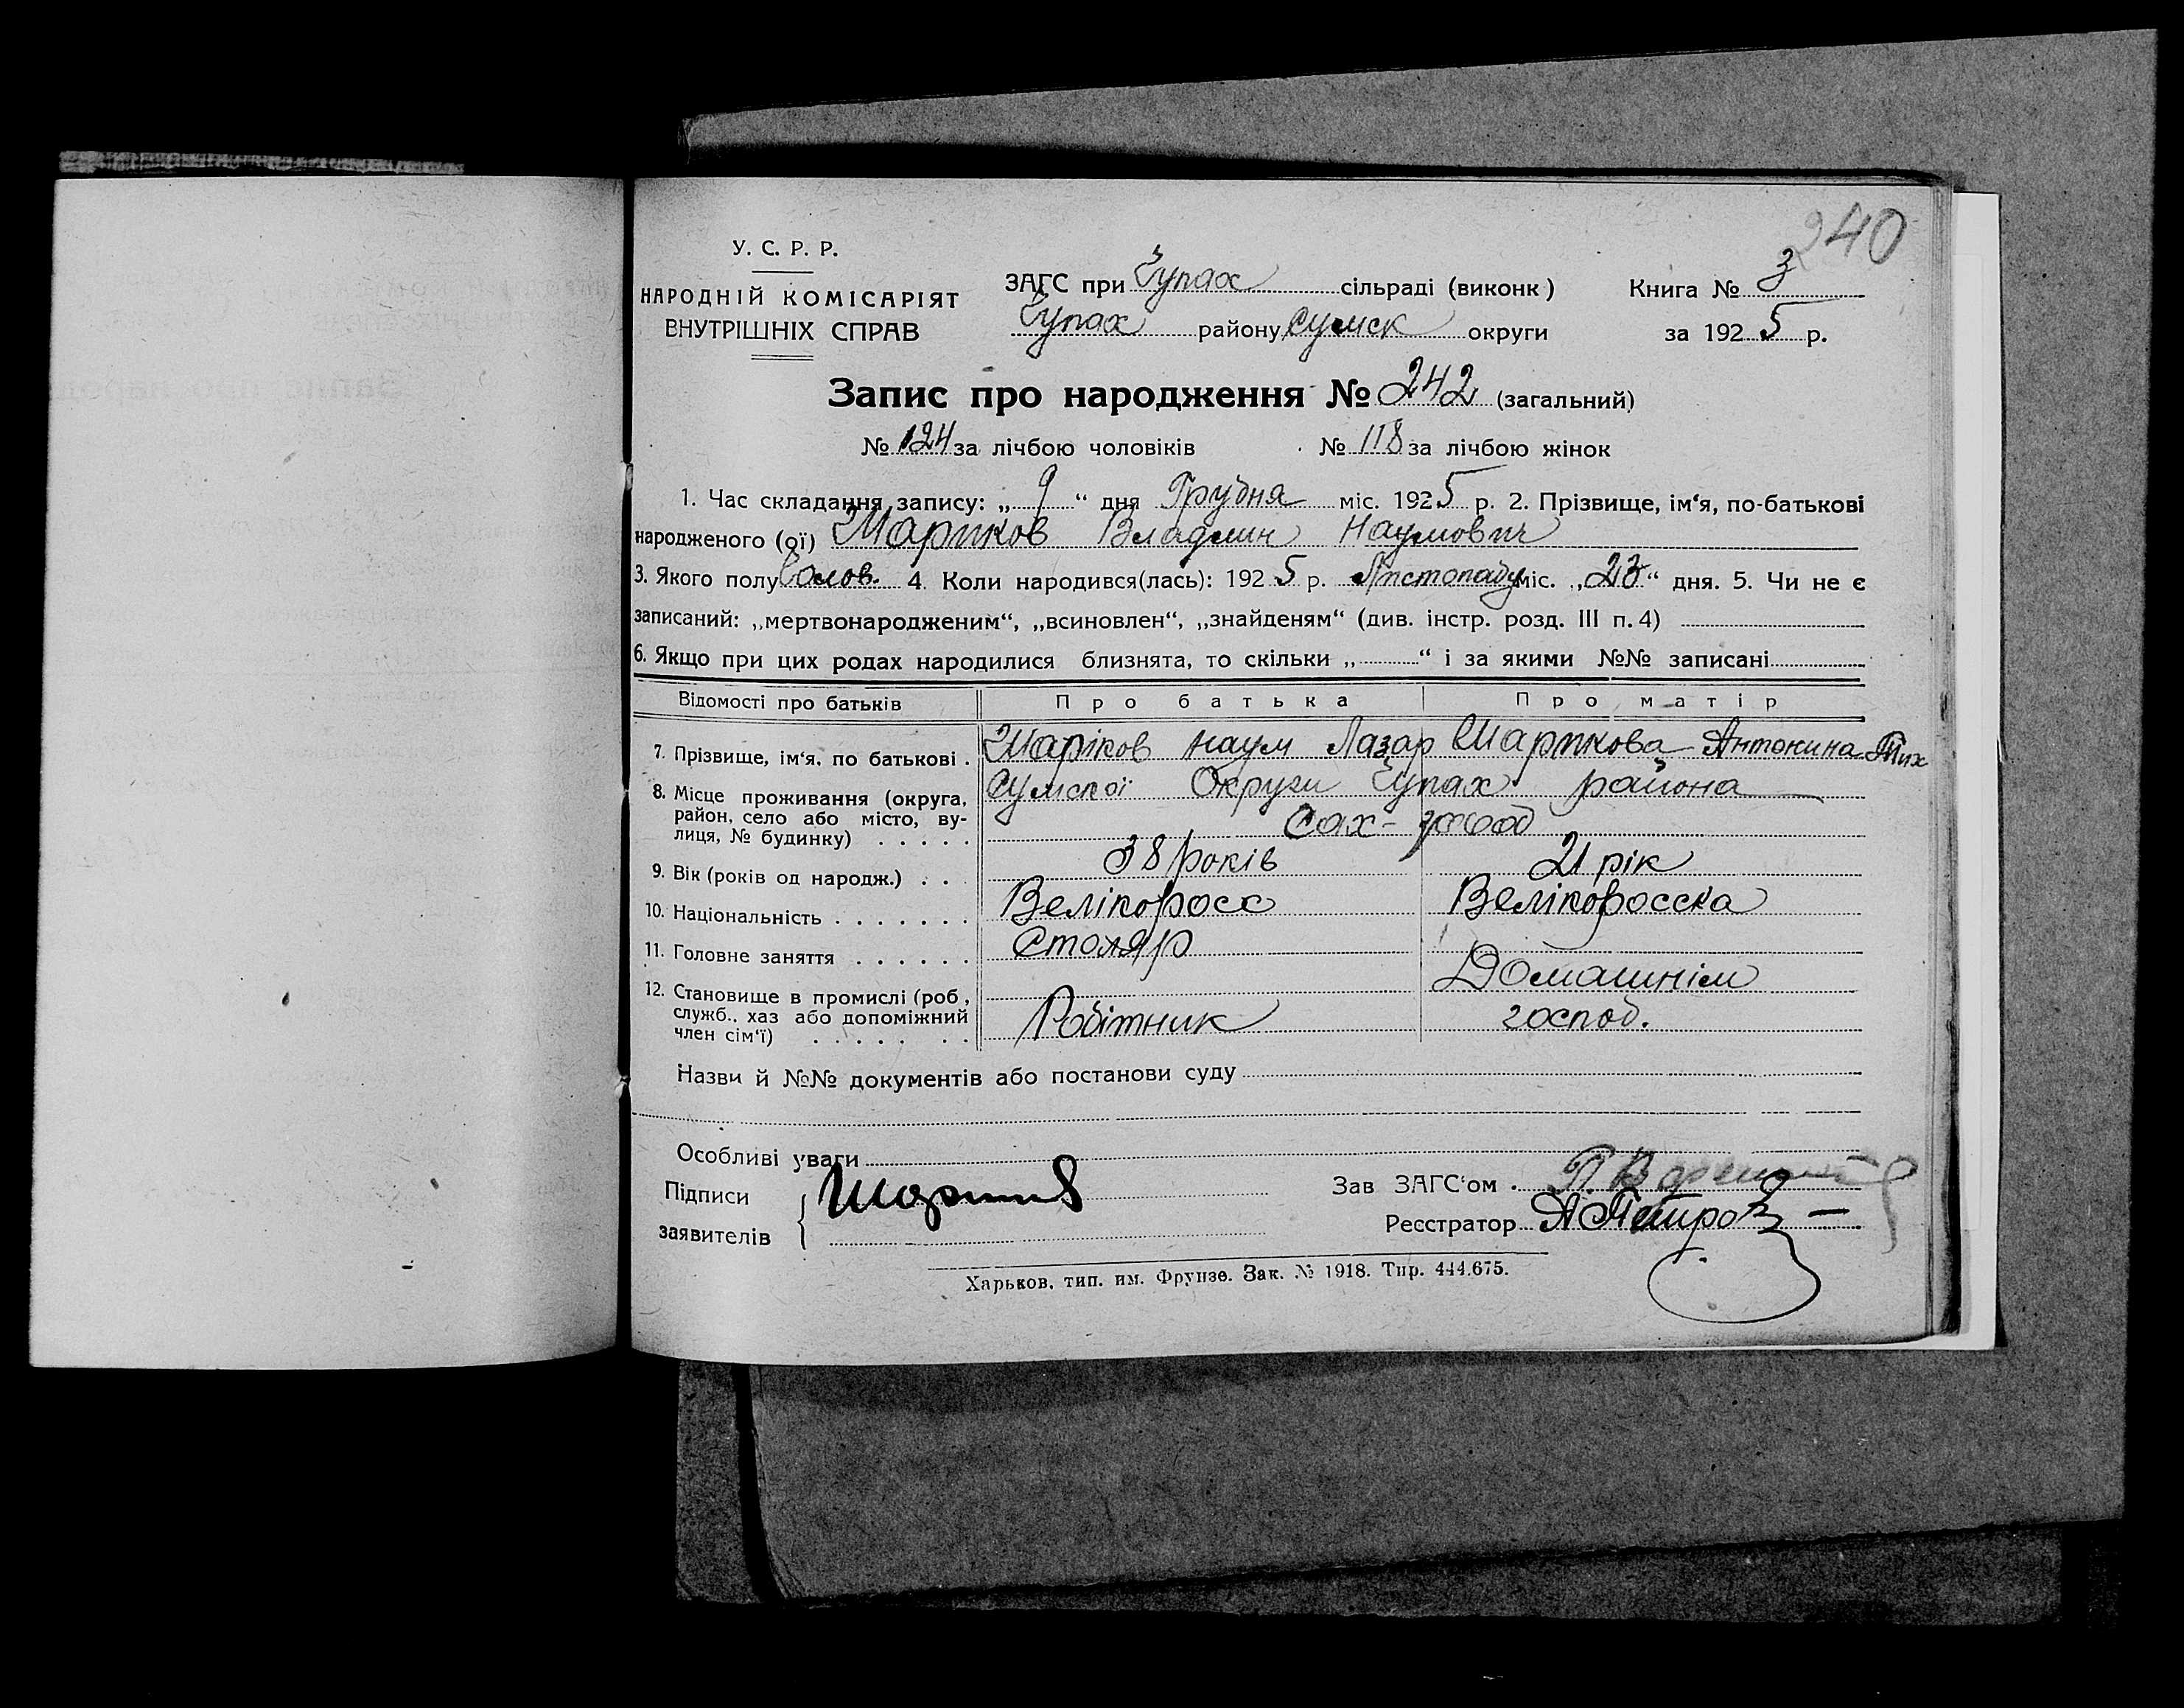 240
У. С. Р. Р.
НАРОДНІЙ КОМІСАРІЯТ
ВНУТРІШНІХ СПРАВ
ЗАГС при Чупах сільраді (виконк)
Чупах району Сумск округи
Книга № 3
за 1925 р.
Запис про народження № 242 (загальний)
№ 124 за лічбою чоловіків № 118 за лічбою жінок
1. Час складання запису: „ 9 “ дня Грудня міс. 1925 р. 2. Прізвище, ім‘я, по-батькові
народженого (ої) Шариков Владлин Наумович
3. Якого полу Чолов. 4. Коли народився(лась): 1925 р. Листопаду міс. „23“ дня. 5. Чи не є
записаний: „мертвонародженим“, „всиновлен“, „знайденям“ (див. інстр. розд. III п. 4)
6. Якщо при цих родах народилися близнята, то скільки „ “ і за якими №№ записані
Відомості про батьків Про батька Про матір
7. Прізвище, ім‘я, по батькові . Шаріков Наум Лазар Шарикова Антонина Тих
8. Місце проживання (округа, район, село або місто, вулиця, № будинку) Сумскої Округи Чупах района
Сах-завод
9. Вік (років од народж.) . . 38 років 21 рік
10. Національність Велікоросс Велікоросска
11. Головне заняття Столяр Домашнім
12. Становище в промислі (роб, служб., хаз або допоміжний член сім‘ї) Робітник господ.
Назви й №№ документів або постанови суду
Особливі уваги
Підписи
заявителів
Зав ЗАГС‘ом .
Реєстратор А Петров
Харьков, тип. им. Фрунзе. Зак. № 1918. Тир. 444.675.